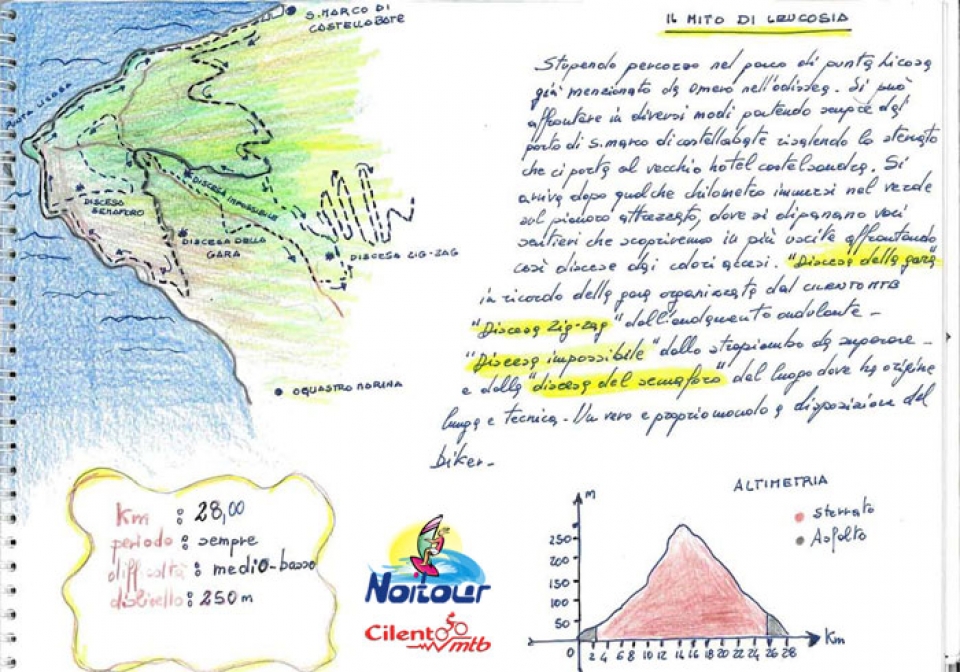 S. MARCO DI
CASTELLABATE
PUNTA LICOSA
DISCESA
SEMAFORO
DISCESA IMPOSSIBILE
DISCESA DELLA
GARA
DISCESA ZIG-ZAG
OGLIASTRO MARINA
IL MITO DI LEUCOSIA
Stupendo percorso nel parco di punta Licosa
già menzionato da omero nell'odissea. Si può
affrontare in diversi modi partendo sempre dal
porto di S. marco di castellabate risalendo lo sterrato
che ci porta al vecchio hotel castelsandra. Si
arriva dopo qualche chilometro immersi nel verde
sul pianoro attrezzato, dove si dipanano vari
sentieri che scopriremo in più uscite affrontando
così discese dai colori accesi. "Discesa della gara"
in ricordo della gara organizzata dal CILENTO MTB
"Discesa Zig-zag" dall'andamento ondulante -
"Discesa impossibile" dallo strapiombo da superare -
e dalla "discesa del semaforo" dal luogo dove ha origine
lunga e tecnica - Un vero e proprio mondo a disposizione del
biker -
Km : 28,00
periodo : sempre
difficoltà : medio-basso
dislivello : 250 m
Noitour
Cilento
mtb
ALTIMETRIA
m
sterrato
Asfalto
250
200
150
100
50
0 2 4 6 8 10 12 14 16 18 20 22 24 26 28
Km